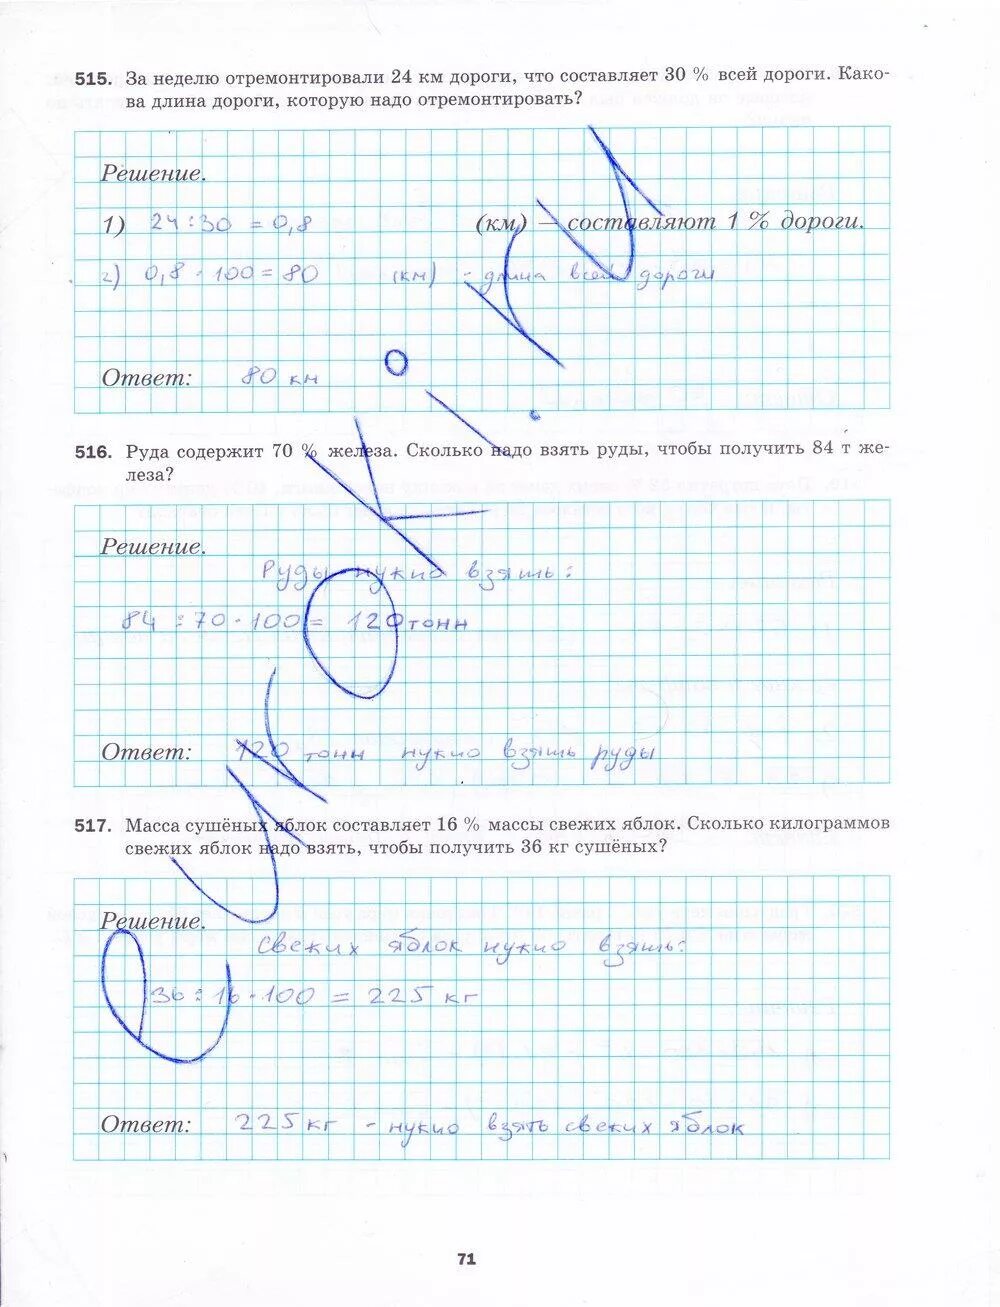 515. За неделю отремонтировали 24 км дороги, что составляет 30 % всей дороги. Како-
ва длина дороги, которую надо отремонтировать?
Решение.
1) 24 : 30 = 0,8 (км) — составляют 1 % дороги.
2) 0,8 · 100 = 80 (км) - длина всей дороги
Ответ: 80 км
516. Руда содержит 70 % железа. Сколько надо взять руды, чтобы получить 84 т же-
леза?
Решение.
Руды нужно взять:
84 : 70 · 100 = 120 тонн
Ответ: 120 тонн нужно взять руды
517. Масса сушёных яблок составляет 16 % массы свежих яблок. Сколько килограммов
свежих яблок надо взять, чтобы получить 36 кг сушёных?
Решение.
Свежих яблок нужно взять:
36 : 16 · 100 = 225 кг
Ответ: 225 кг - нужно взять свежих яблок
71